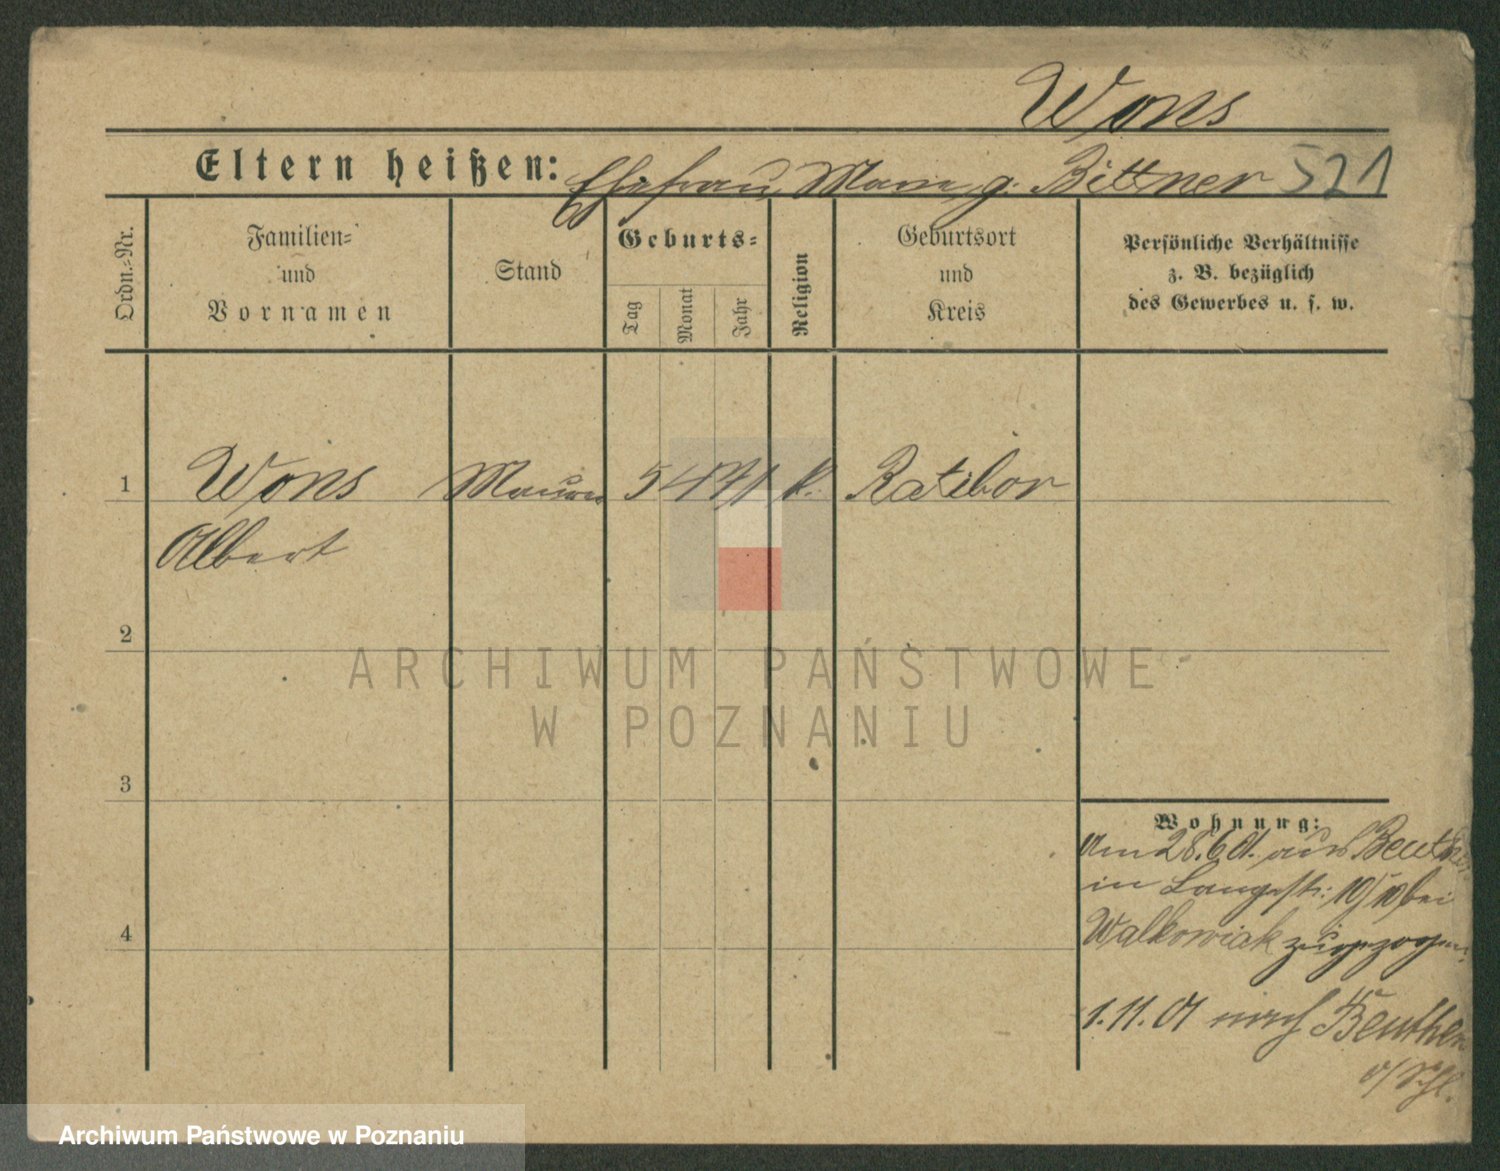 Wons
Eltern heißen: Ehefrau Marie g. Bittner 521
Ordn.-Nr.
Familien-
und
Vornamen
Stand
Geburts-
Tag
Monat
Jahr
Religion
Geburtsort
und
Kreis
Persönliche Verhältnisse
z. B. bezüglich
des Gewerbes u. s. w.
1 Wons Maurer 5 4 71 k. Ratibor
Albert
2
ARCHIWUM PAŃSTWOWE
W POZNANIU
3
Wohnung:
am 28.6.01. aus Beuthen
in Langestr: 10/ bei
4 Walkowiak zugezogen
1.11.01 nach Beuthen
o/Schl.
Archiwum Państwowe w Poznaniu